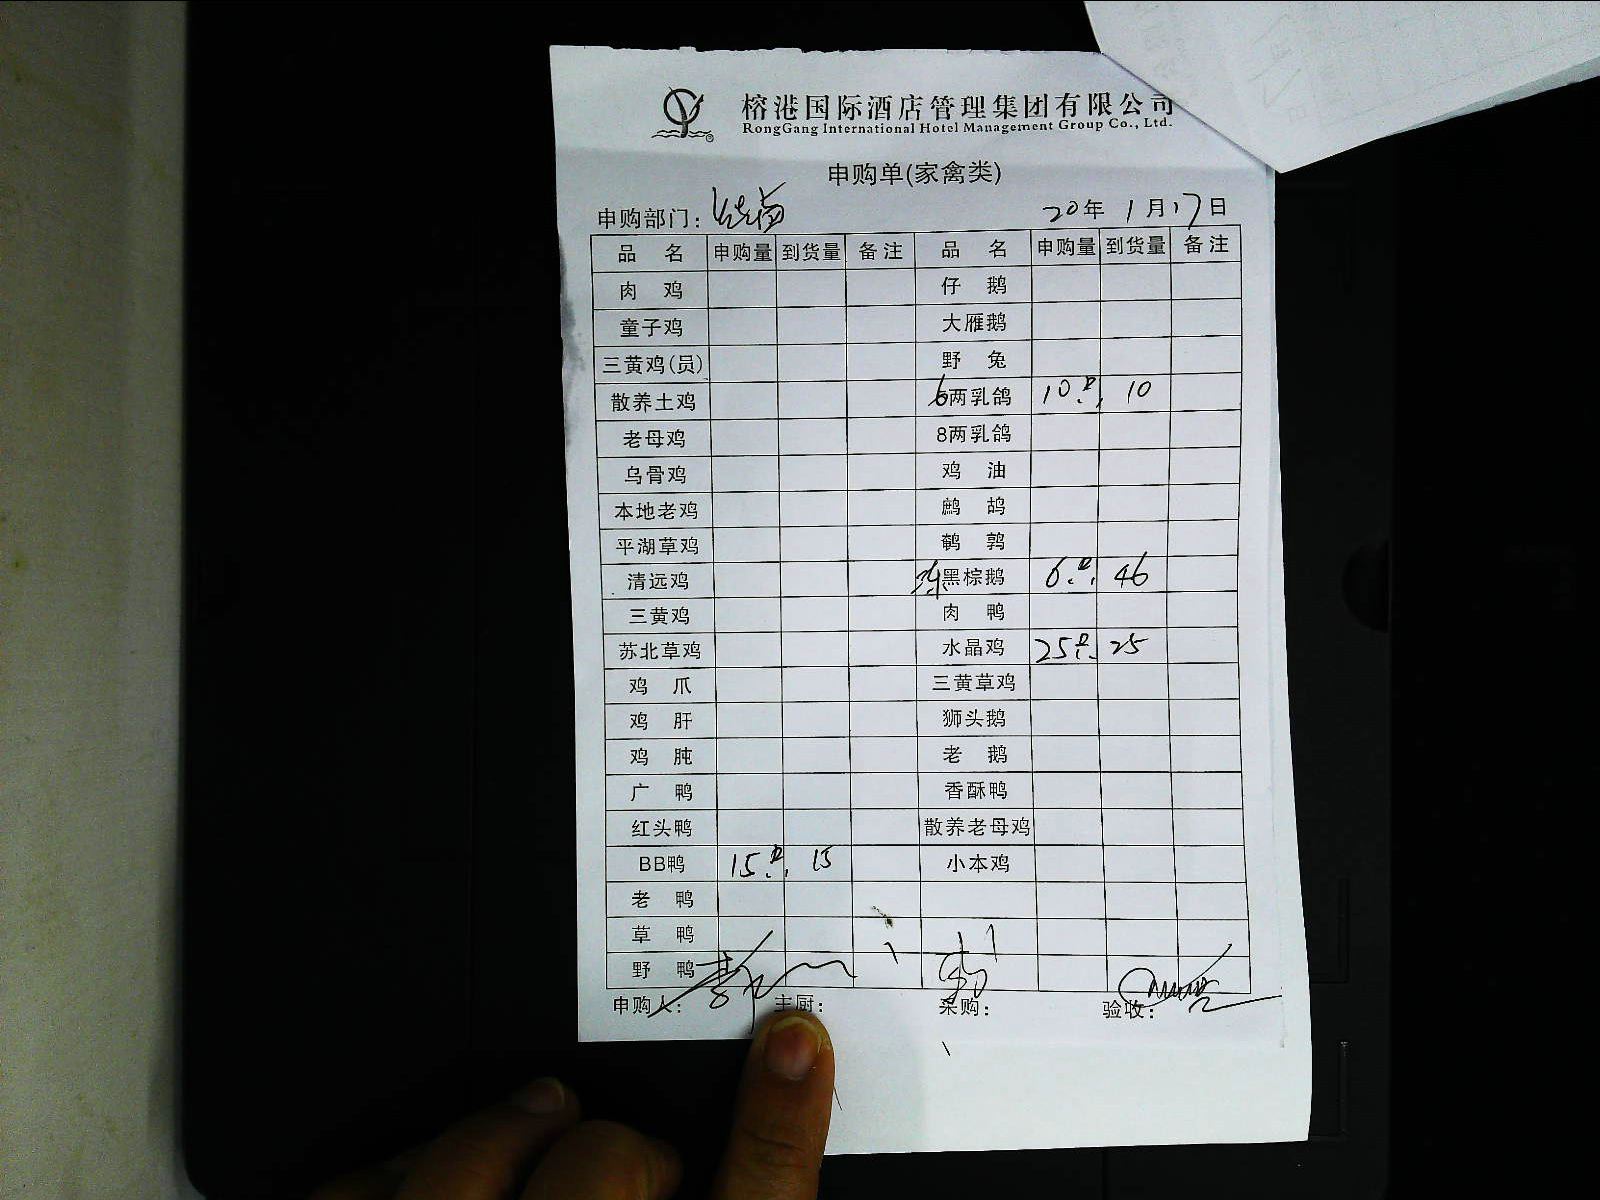 榕港国际酒店管理集团有限公司
RongGang International Hotel Management Group Co., Ltd.
申购单(家禽类)
申购部门: 20年 1月17日
品 名 申购量 到货量 备注 品 名 申购量 到货量 备注
肉 鸡 仔 鹅
童子鸡 大雁鹅
三黄鸡(员) 野 兔
散养土鸡 6两乳鸽 10只 10
老母鸡 8两乳鸽
乌骨鸡 鸡 油
本地老鸡 鹧 鸪
平湖草鸡 鹌 鹑
清远鸡 黑棕鹅 6只 46
三黄鸡 肉 鸭
苏北草鸡 水晶鸡 25只 25
鸡 爪 三黄草鸡
鸡 肝 狮头鹅
鸡 肫 老 鹅
广 鸭 香酥鸭
红头鸭 散养老母鸡
BB鸭 15只 15 小本鸡
老 鸭
草 鸭
野 鸭
申购人: 主厨: 采购: 验收: